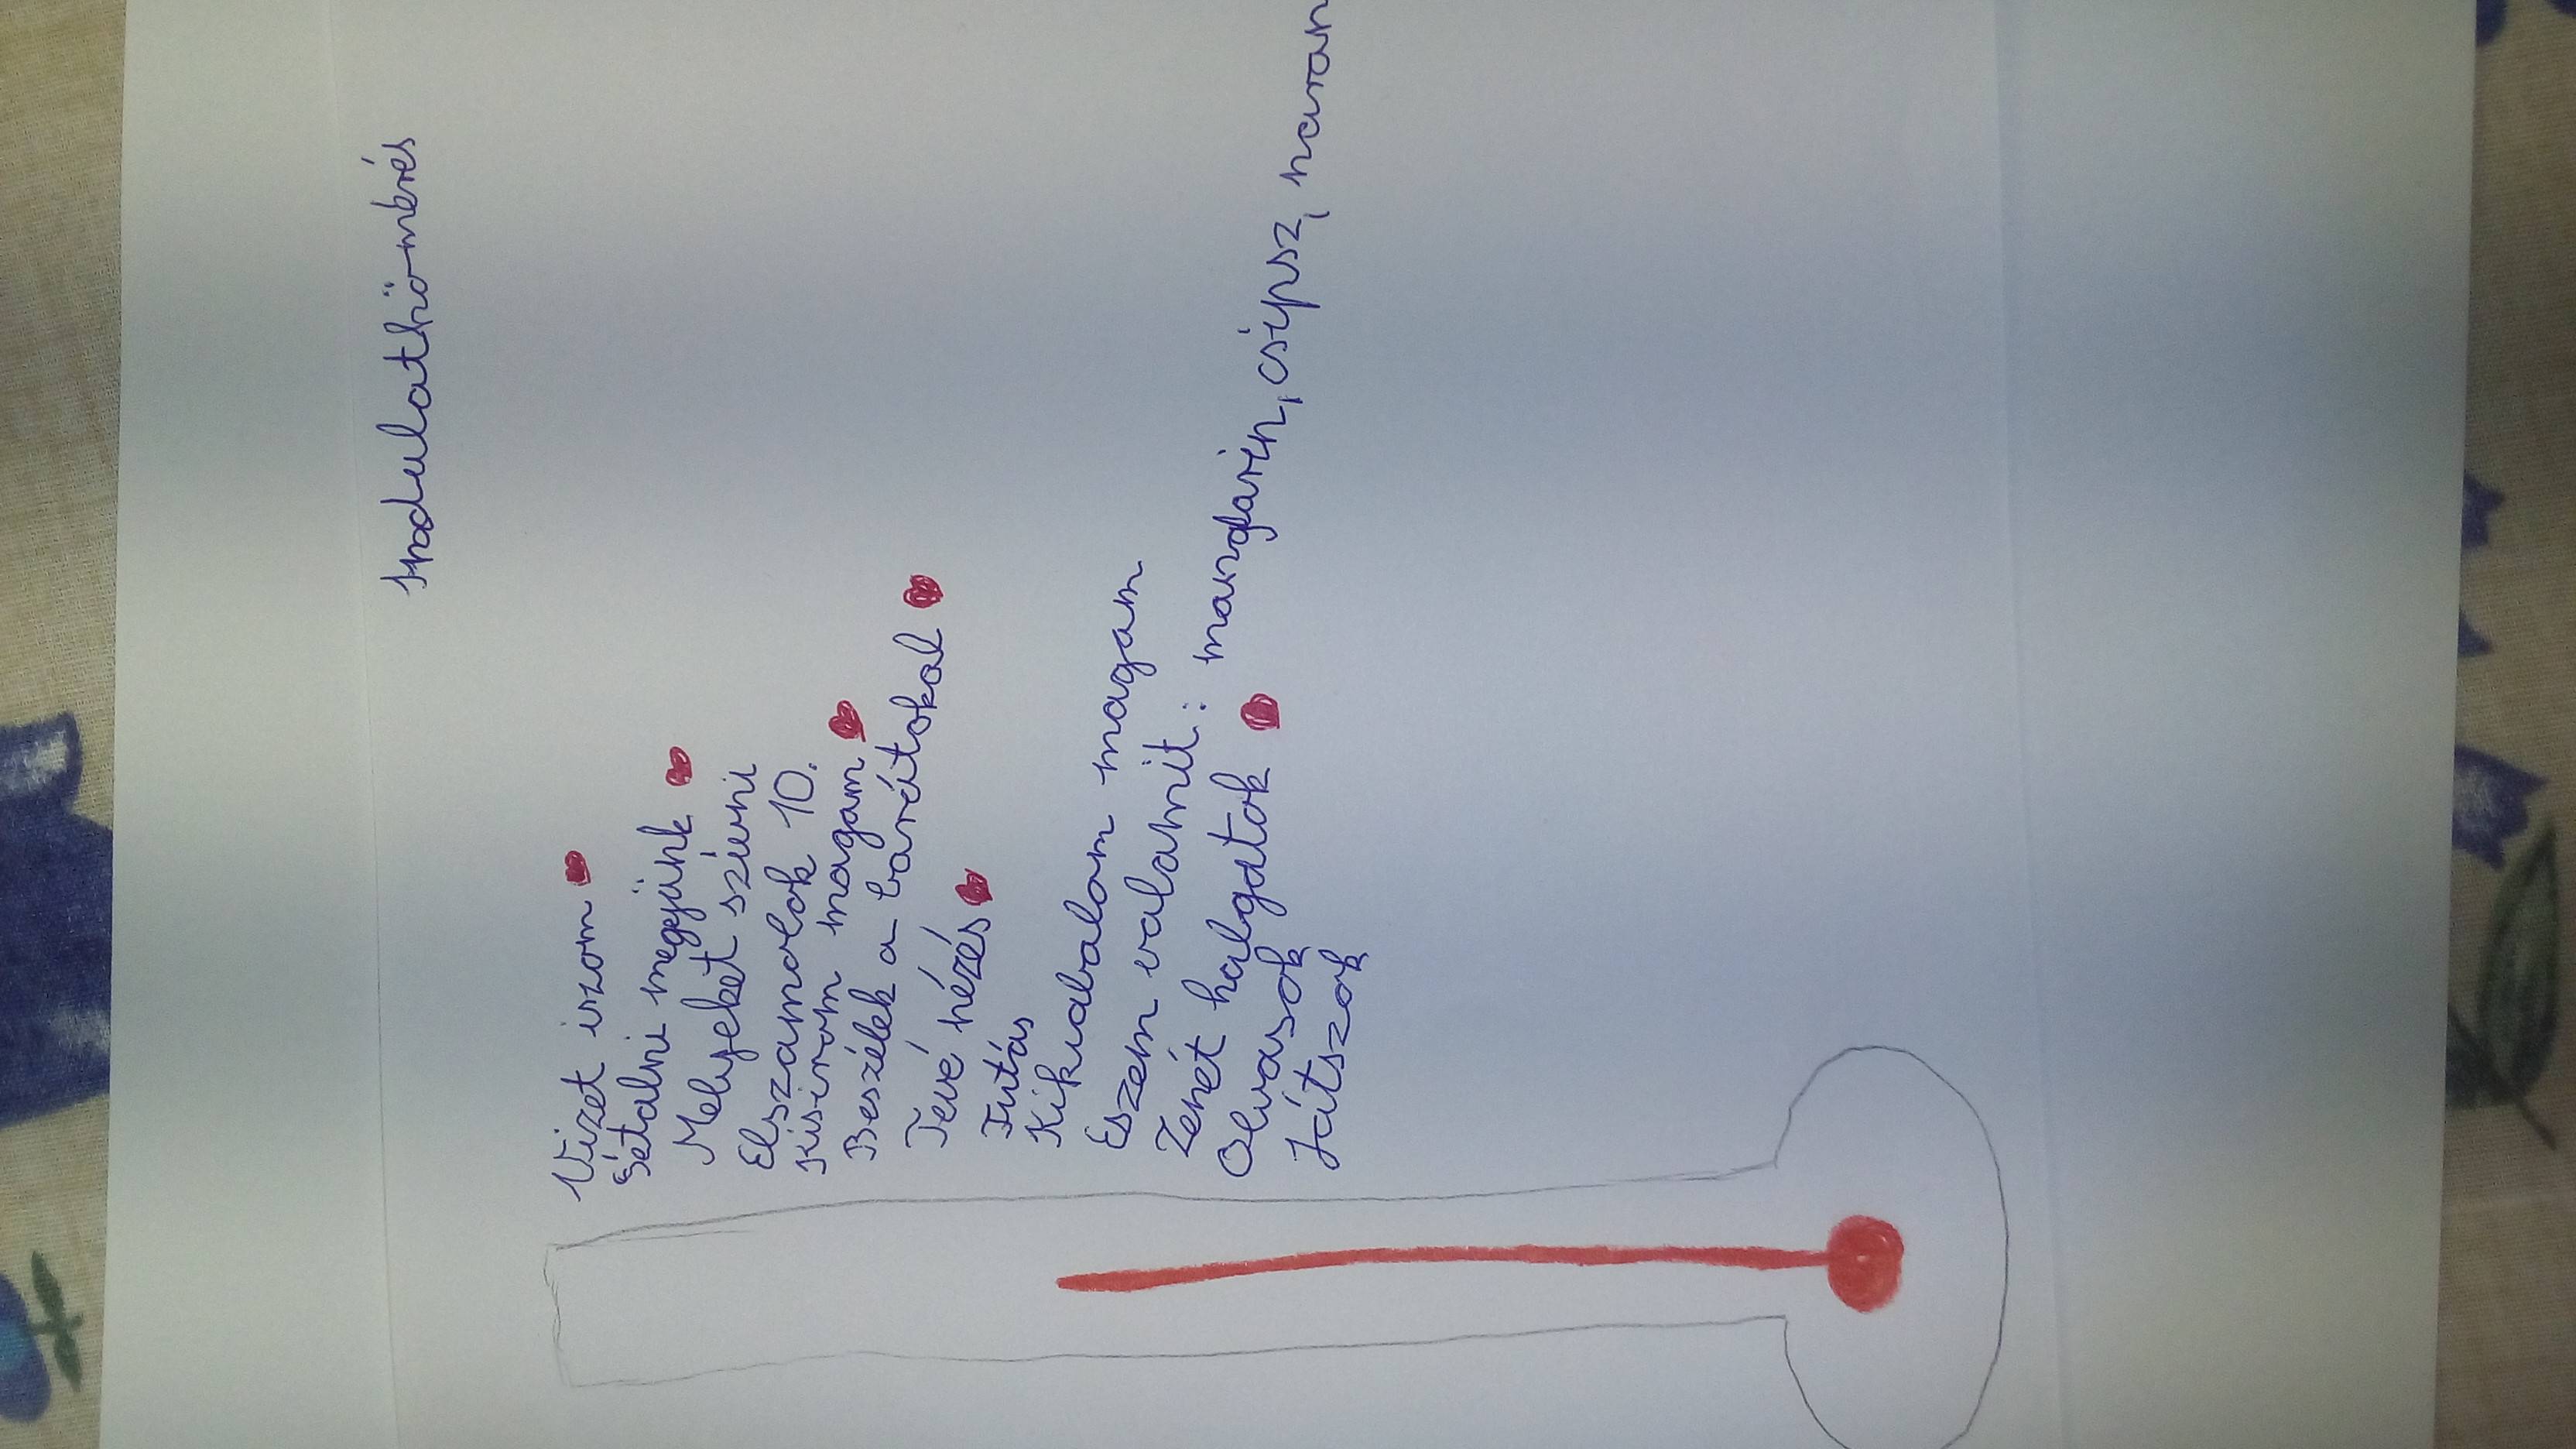 Indulathő-mérés
Vizet iszom
Sétalni megyünk
Mélyeket szívni
Elszamolok 10.
Kisírom magam
Beszélek a barátokal
Tevé nézés
Futás
Kikiabalom magam
Eszem valamit: mandarin, csípsz,
Zenét halgatok
Olvasok
Játszok